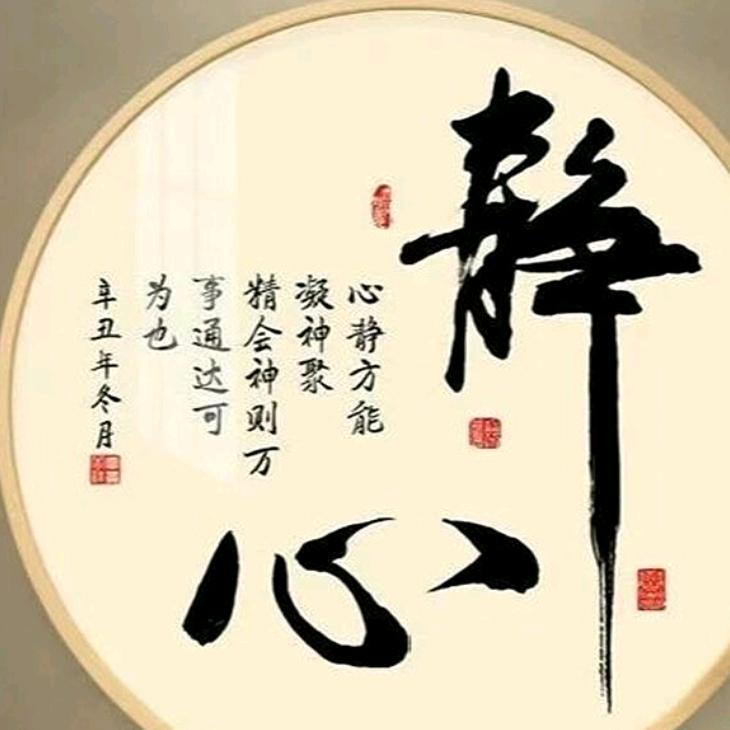 静
心
心静方能
凝神聚
精会神则万
事通达可
为也
辛丑年冬月